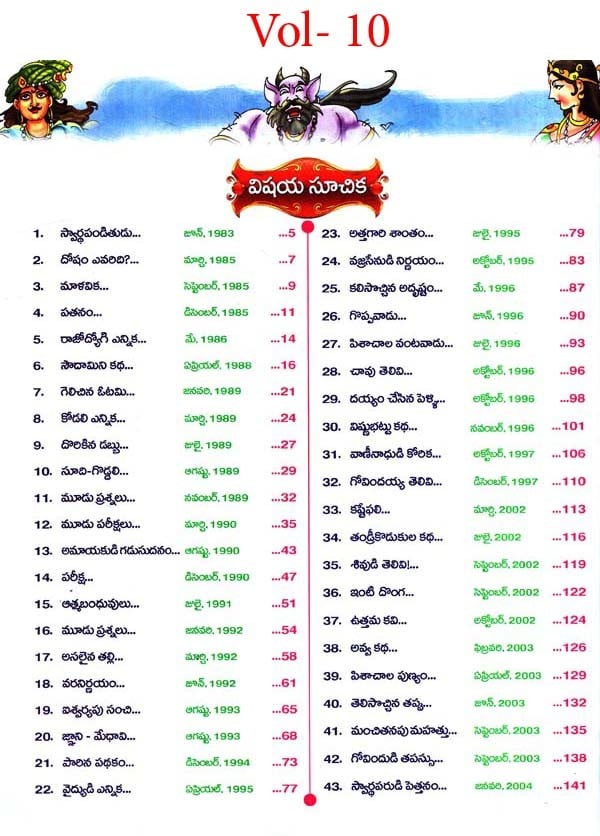 Vol- 10
విషయ సూచిక
1. స్వార్థపండితుడు... జూన్, 1983 ...5
2. దోషం ఎవరిది?... మార్చి, 1985 ...7
3. మాళవిక... సెప్టెంబర్, 1985 ...9
4. పతనం... డిసెంబర్, 1985 ...11
5. రాజోద్యోగి ఎన్నిక... మే, 1986 ...14
6. సౌదామిని కథ... ఏప్రియల్, 1988 ...16
7. గెలిచిన ఓటమి... జనవరి, 1989 ...21
8. కోడలి ఎన్నిక... మార్చి, 1989 ...24
9. దొరికిన డబ్బు... జులై, 1989 ...27
10. సూది-గొడ్డలి... ఆగష్టు, 1989 ...29
11. మూడు ప్రశ్నలు... నవంబర్, 1989 ...32
12. మూడు పరీక్షలు... మార్చి, 1990 ...35
13. అమాయకుడి గడుసుదనం... ఆగష్టు, 1990 ...43
14. పరీక్ష... డిసెంబర్, 1990 ...47
15. ఆత్మబంధువులు... జులై, 1991 ...51
16. మూడు ప్రశ్నలు... జనవరి, 1992 ...54
17. అసలైన తల్లి... మార్చి, 1992 ...58
18. వరనిర్ణయం... జూన్, 1992 ...61
19. ఐశ్వర్యపు సంచి... ఆగష్టు, 1993 ...65
20. జ్ఞాని - మేధావి... ఆగష్టు, 1993 ...68
21. పారిన పథకం... డిసెంబర్, 1994 ...73
22. వైద్యుడి ఎన్నిక... ఏప్రియల్, 1995 ...77
23. అత్తగారి శాంతం... జులై, 1995 ...79
24. వజ్రసేనుడి నిర్ణయం... అక్టోబర్, 1995 ...83
25. కలిసొచ్చిన అదృష్టం... మే, 1996 ...87
26. గొప్పవాడు... జూన్, 1996 ...90
27. పిశాచాల వంటవాడు... జులై, 1996 ...93
28. చావు తెలివి... అక్టోబర్, 1996 ...96
29. దయ్యం చేసిన పెళ్ళి... అక్టోబర్, 1996 ...98
30. విష్ణుభట్టు కథ... నవంబర్, 1996 ...101
31. వాణీనాథుడి కోరిక... అక్టోబర్, 1997 ...106
32. గోవిందయ్య తెలివి... డిసెంబర్, 1997 ...110
33. కష్టేఫలి... మార్చి, 2002 ...113
34. తండ్రీకొడుకుల కథ... జులై, 2002 ...116
35. శివుడి తెలివి!... సెప్టెంబర్, 2002 ...119
36. ఇంటి దొంగ... సెప్టెంబర్, 2002 ...122
37. ఉత్తమ కవి... అక్టోబర్, 2002 ...124
38. అవ్వ కథ... ఫిబ్రవరి, 2003 ...126
39. పిశాచాల పుణ్యం... ఏప్రియల్, 2003 ...129
40. తెలిసొచ్చిన తప్పు... జూన్, 2003 ...132
41. మంచితనపు మహత్తు... సెప్టెంబర్, 2003 ...135
42. గోవిందుడి తపస్సు... సెప్టెంబర్, 2003 ...138
43. స్వార్థపరుడి పెత్తనం... జనవరి, 2004 ...141